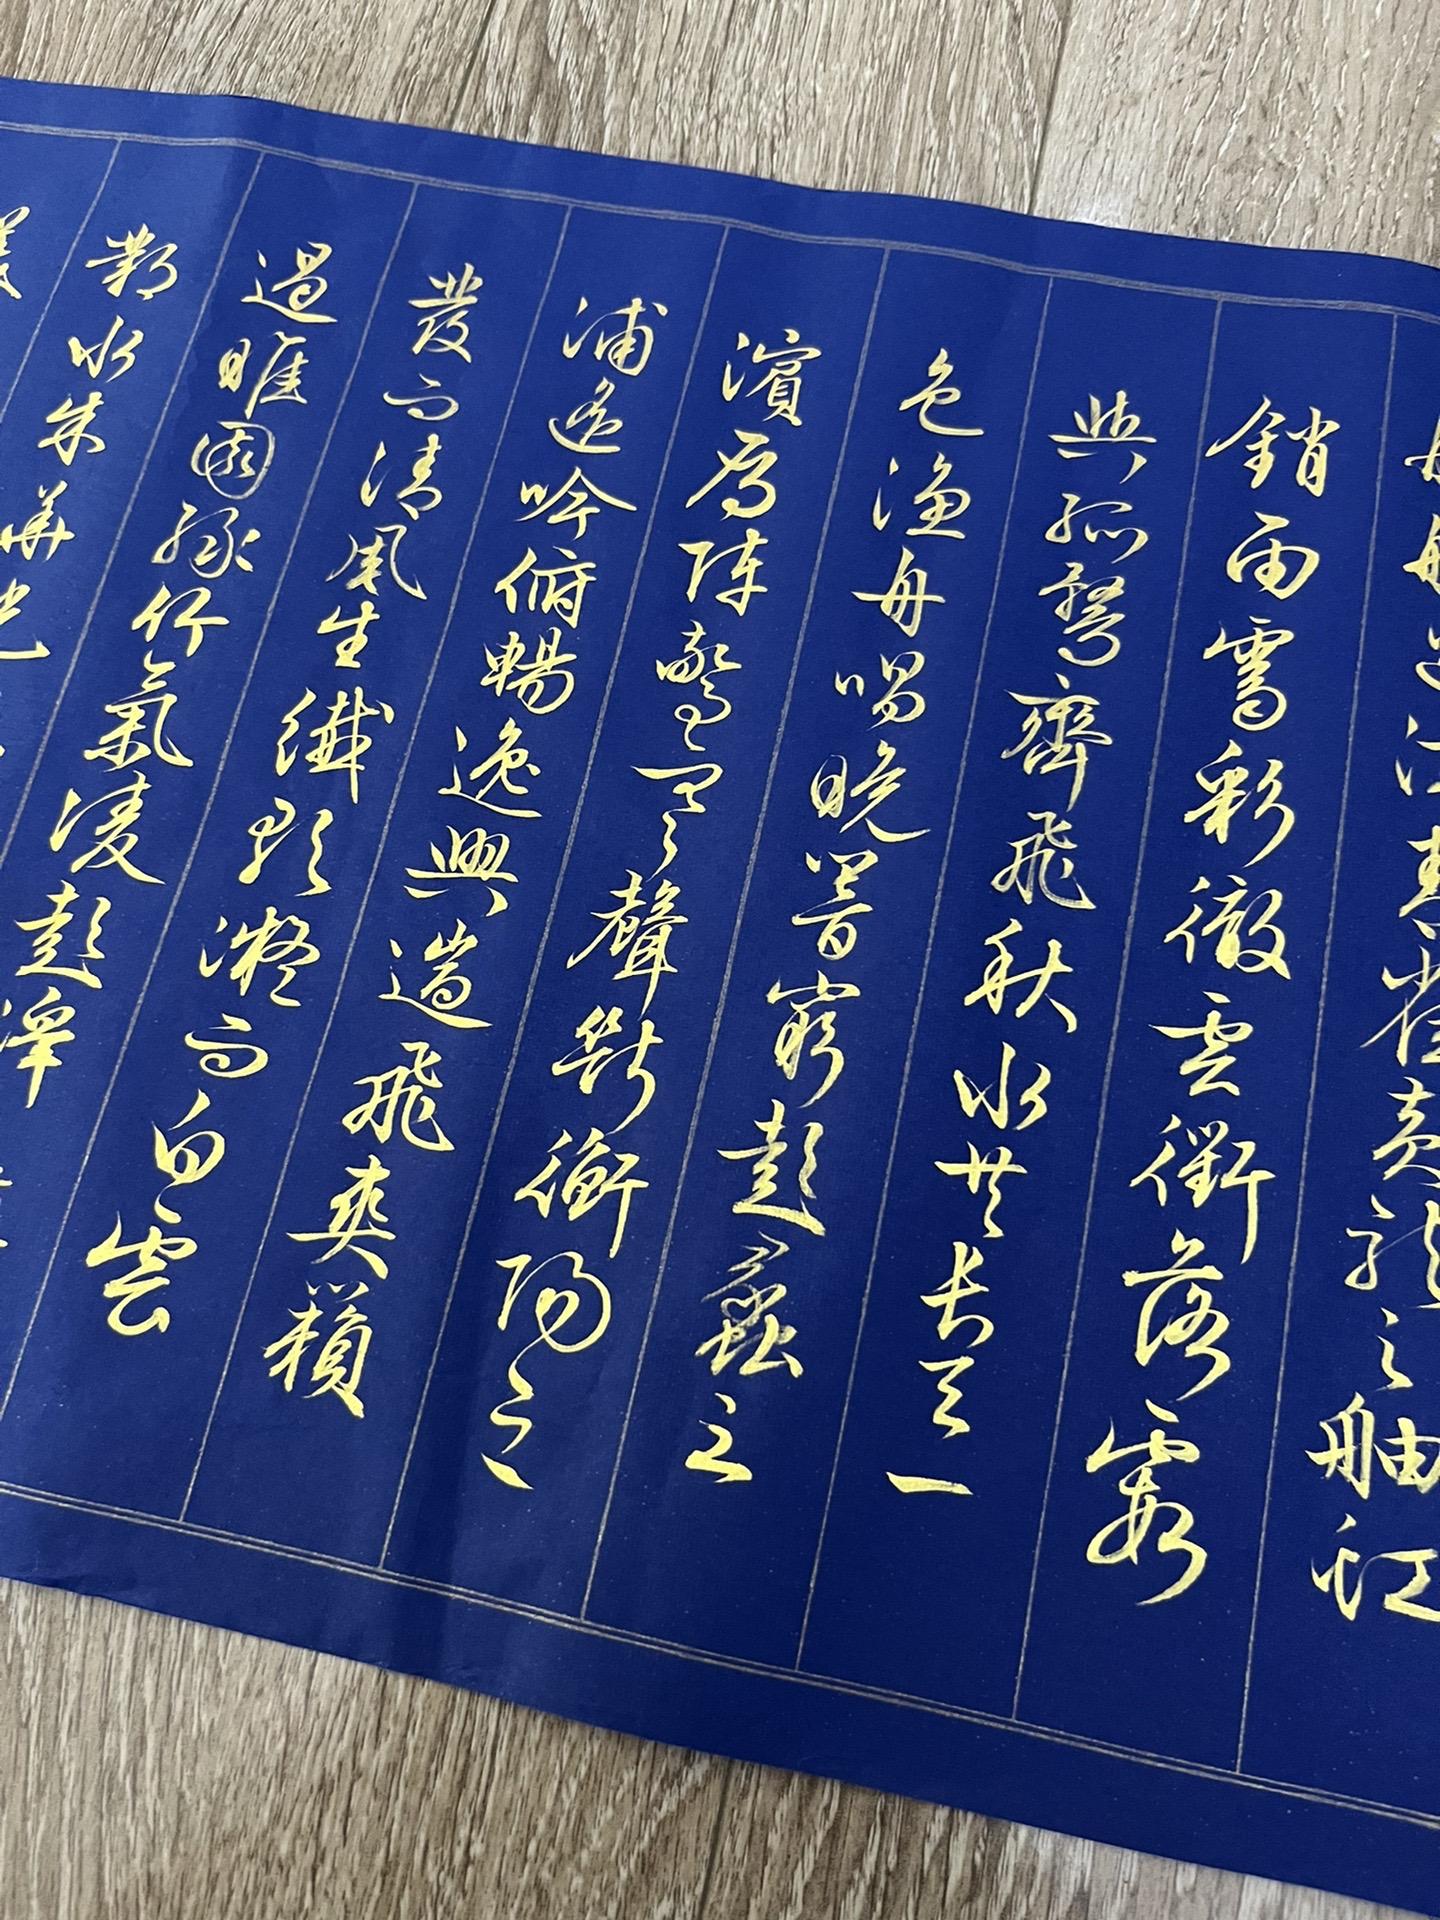 舸艦迷津青雀黃龍之舳虹
銷雨霽彩徹雲衢落霞
與孤鶩齊飛秋水共長天一
色漁舟唱晚響窮彭蠡之
濱雁陣驚寒聲斷衡陽之
浦遙吟俯暢逸興遄飛爽籟
發而清風生纖歌凝而白雲
遏睢園綠竹氣凌彭澤
鄴水朱華光
美